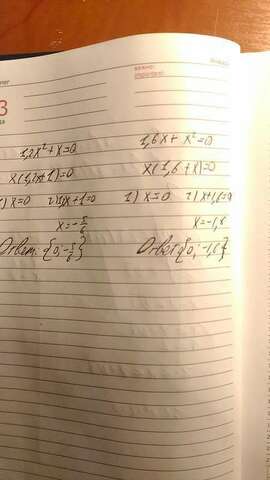 3
важно
important
1,2x²+x=0
x(1,2x+1)=0
1) x=0 2) 1,2x+1=0
x=-5/6
Ответ: {0; -5/6}
1,6x+x²=0
x(1,6+x)=0
1) x=0 2) x+1,6=0
x=-1,6
Ответ {0; -1,6}